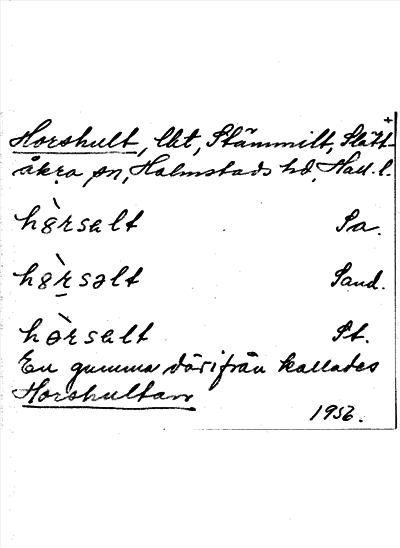 +
Horshult, lht, Stämmilt, Slätt-
åkra sn, Halmstads hd, Hall. l.
hòrsalt Sa.
hòrsəlt Sand.
hòrsalt St.
En gumma därifrån kallades
Horshultan
1956.